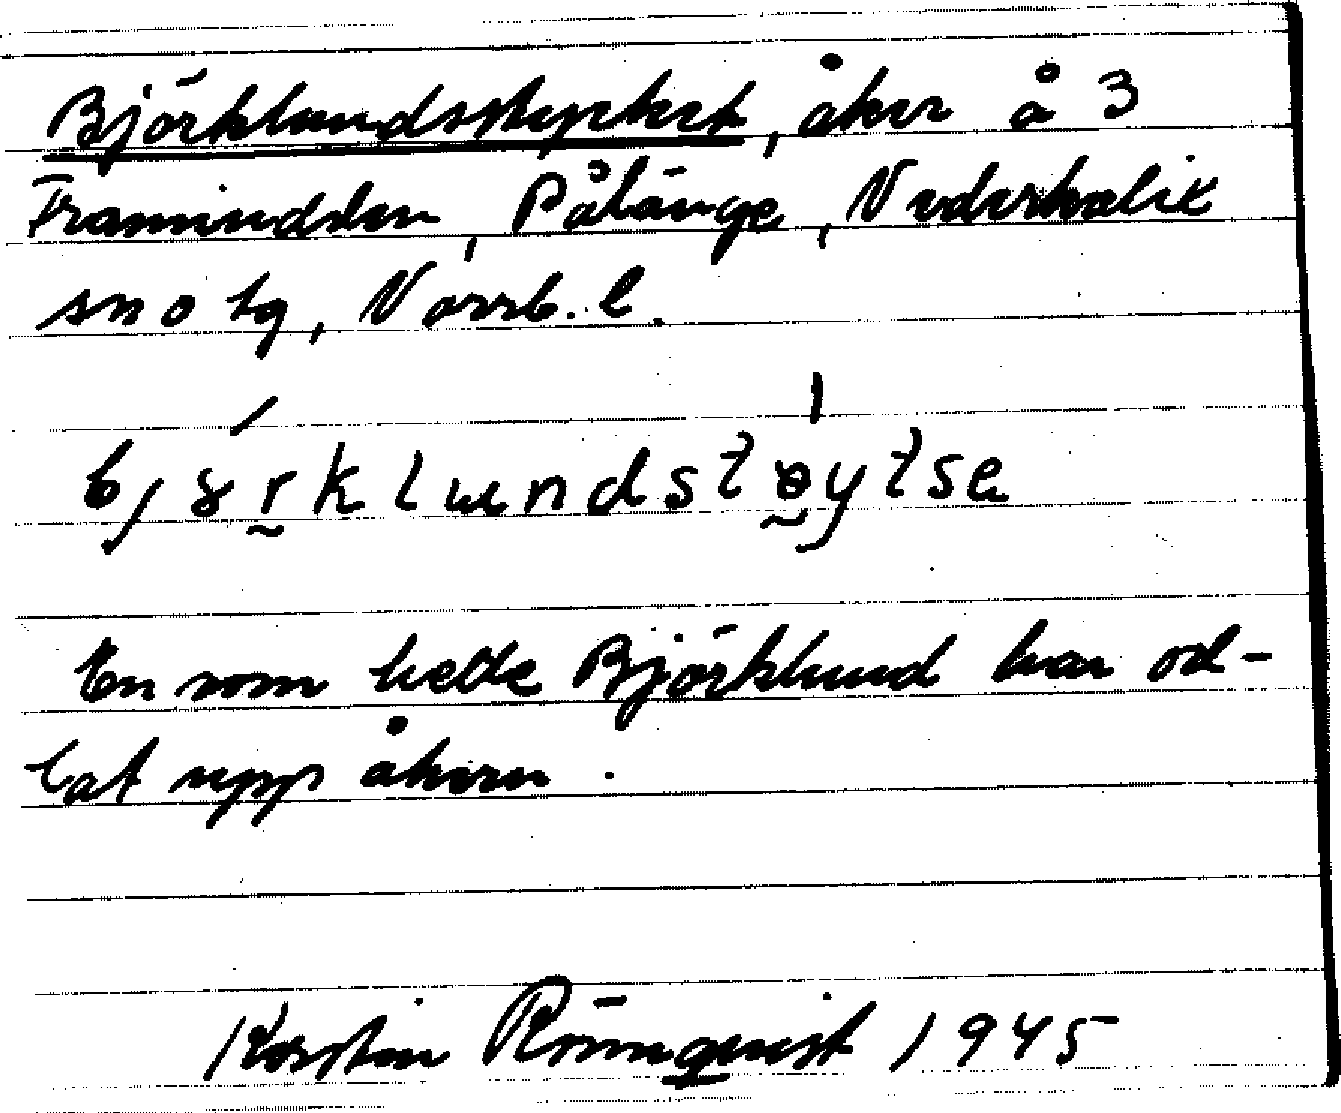 Björklundsstycket, åker å 3
Framindelen, Pålänge, Nederkalix
sn o tg, Norrb. l.
björklundstøytse
En som hette Björklund har od-
lat upp åkern.
Kerstin Rönnquist 1945